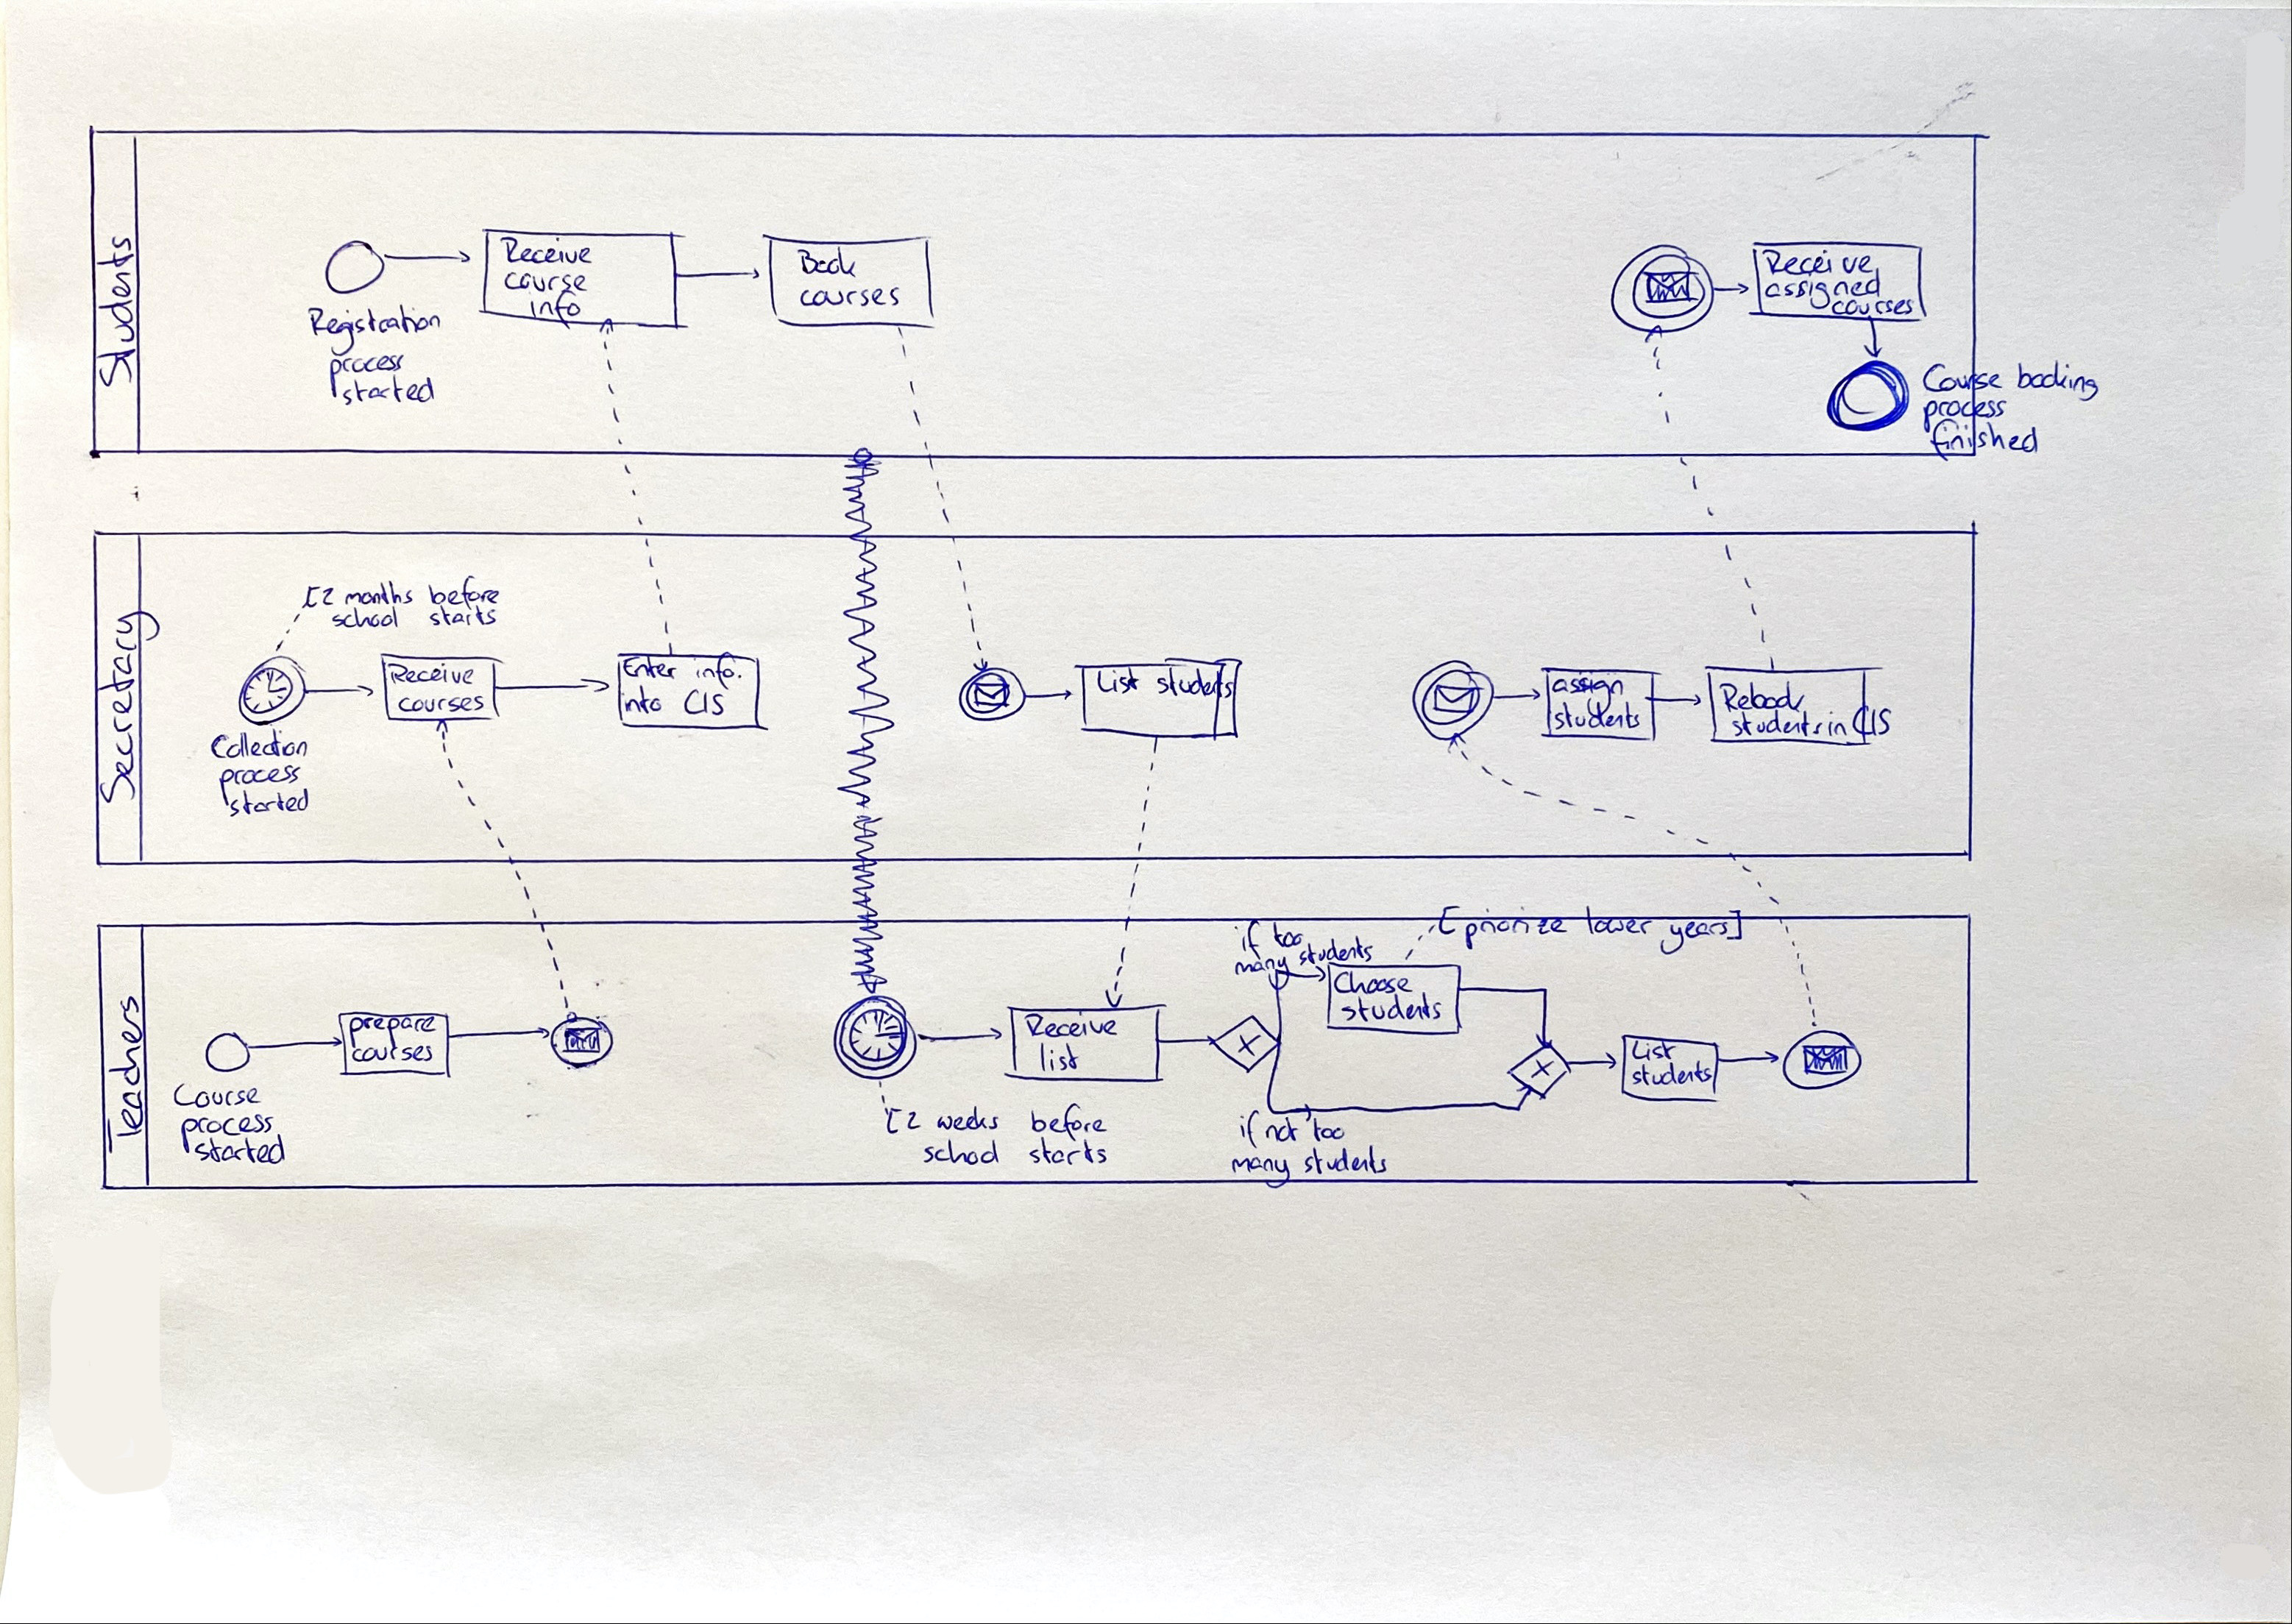 Students
Registration
process
started
Receive
course
info
Book
courses
Receive
assigned
courses
Course booking
process
finished
Secretary
[2 months before
school starts
Collection
process
started
Receive
courses
Enter info.
into CIS
List students
assign
students
Rebook
students in CIS
Teachers
Course
process
started
prepare
courses
[2 weeks before
school starts
Receive
list
if too
many students
if not too
many students
[priorize lower years]
Choose
students
List
students